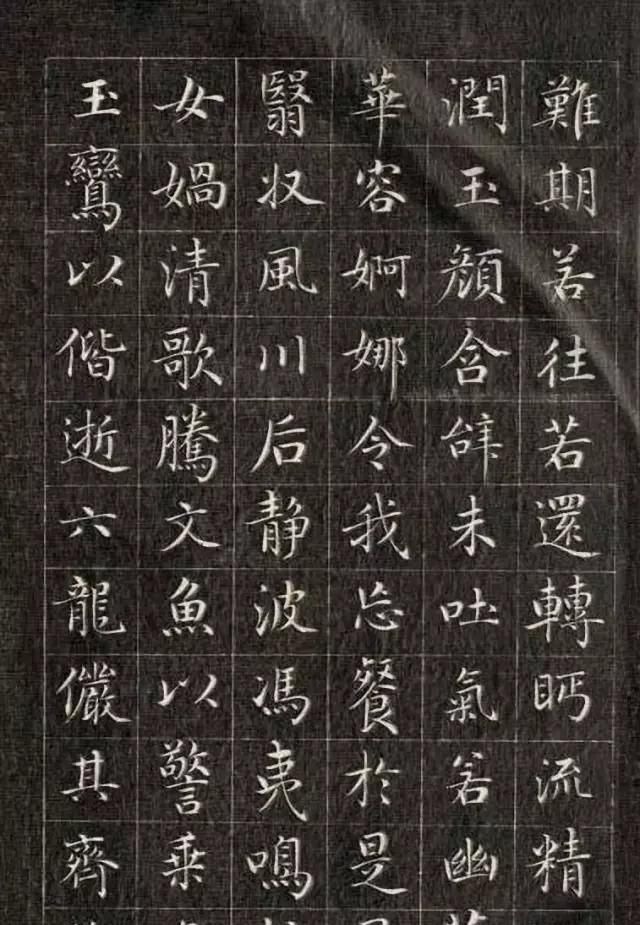 難期若往若還轉眄流精
潤玉顏含辭未吐氣若幽
華容婀娜令我忘餐於是
翳收風川后静波馮夷鳴
女媧清歌騰文魚以警乗
玉鸞以偕逝六龍儼其齊